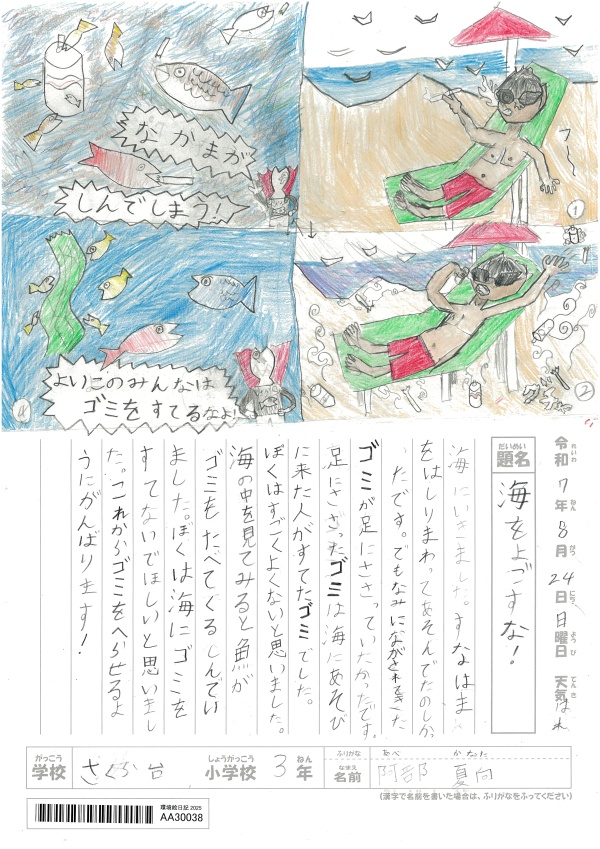 なかまが
しんでしまう!
よいこのみんなは
ゴミをすてるなよ!
1
2
4
令和7年8月24日日曜日 天気はれ
れいわ ねん がつ にち よう び てんき
だいめい
題名
海をよごすな!
海にいきました。すなはま
をはしりまわってあそんでたのしか
ったです。でもなみにながされてきた
ゴミが足にささっていたかったです。
足にささったゴミは海にあそび
に来た人がすてたゴミでした。
ぼくはすごくよくないと思いました。
海の中を見てみると魚が
ゴミもたべてくるしんでい
ました。ぼくは海にゴミを
すてないでほしいと思いまし
た。これからゴミをへらせるよ
うにがんばります!
がっこう
学校
さくら台
しょうがっこう
小学校
3
ねん
年
ふりがな
あべ かなた
なまえ
名前
阿部 夏向
(漢字で名前を書いた場合は、ふりがなをふってください)
環境絵日記 2025
AA30038